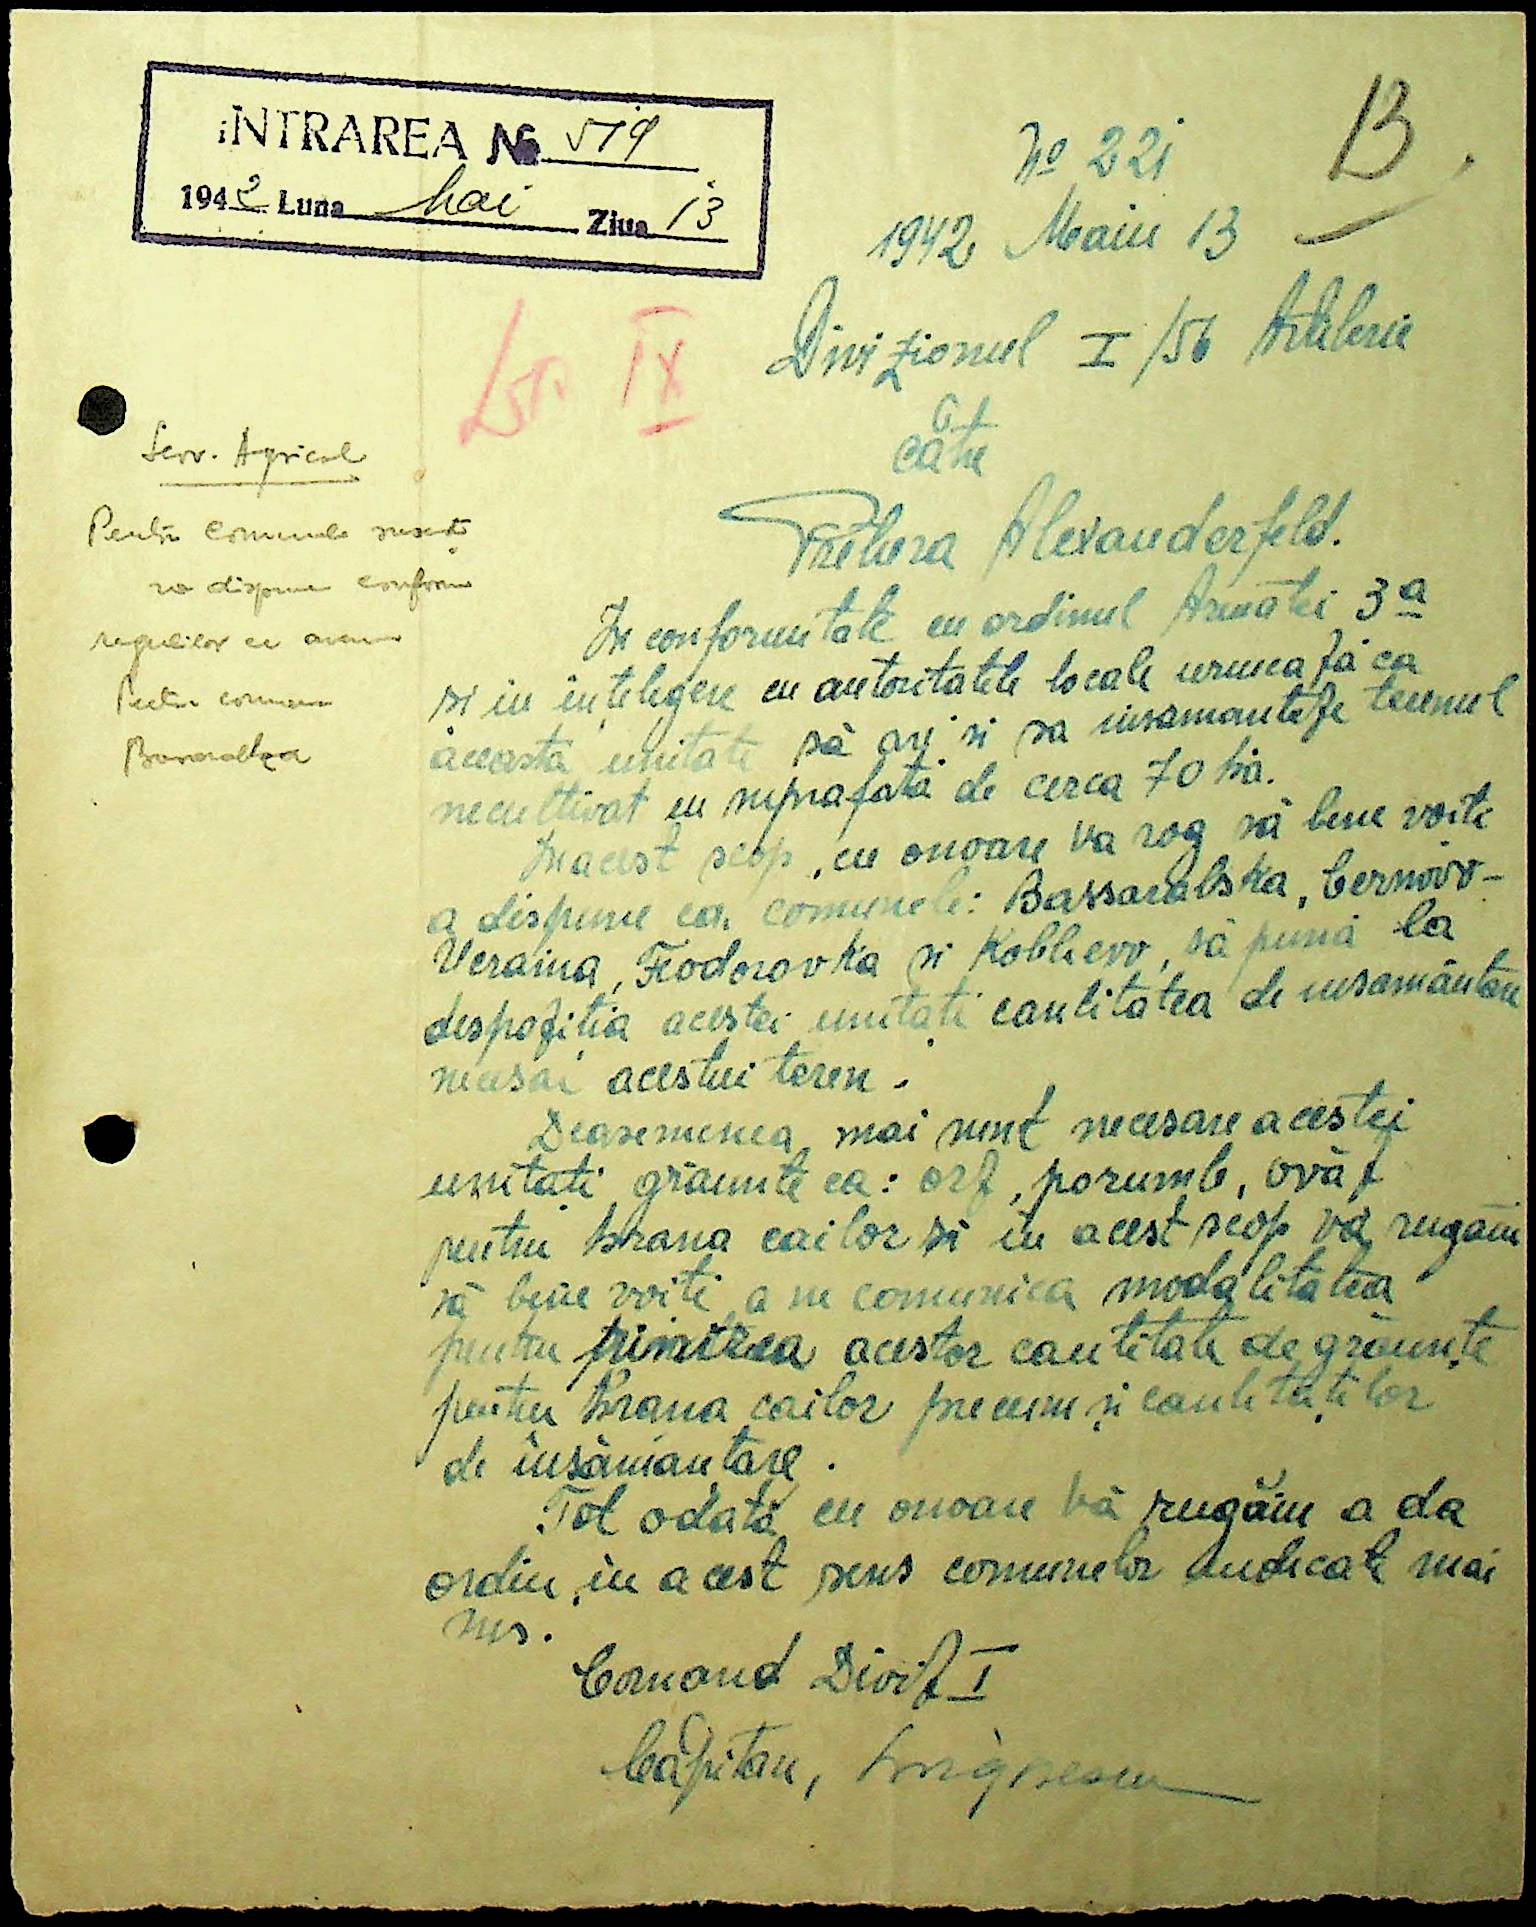 INTRAREA No 519
1942 Luna Mai Ziua 13
13
No 221
1942 Maiu 13
Divizionul I/56 Artilerie
către
Pretura Alexanderfeld.
IX
Serv. Agricol
Pentru comunele
se dispune conform
regulilor ce avem
Pentru comuna
In conformitate cu ordinul Armatei 3a
si in intelegere cu autoritatele locale urmează ca
aceasta unitate să are si sa insamanteze terenul
necultivat cu suprafata de cerca 70 ha.
In acest scop, cu onoare va rog să bine voiti
a dispune ca comunele: Bassarabska, Cernovo-
Ucraina, Feodorovka si Koblievo, să pună la
dispozitia acestei unitați cantitatea de insamântare
necesar acestui teren.
Deasemenea mai sunt necesare acestei
unitati grăunte ca: orz, porumb, ovăz
pentru hrana cailor si in acest scop vă rugăm
să bine voiti a ne comunica modalitatea
pentru primirea acestor cantitati de grăunțe
pentru hrana cailor precum și cantităților
de însămanțare.
Tot odată cu onoare vă rugăm a da
ordin in acest sens comunelor indicate mai
sus.
Comand Diviz I
Căpitan,